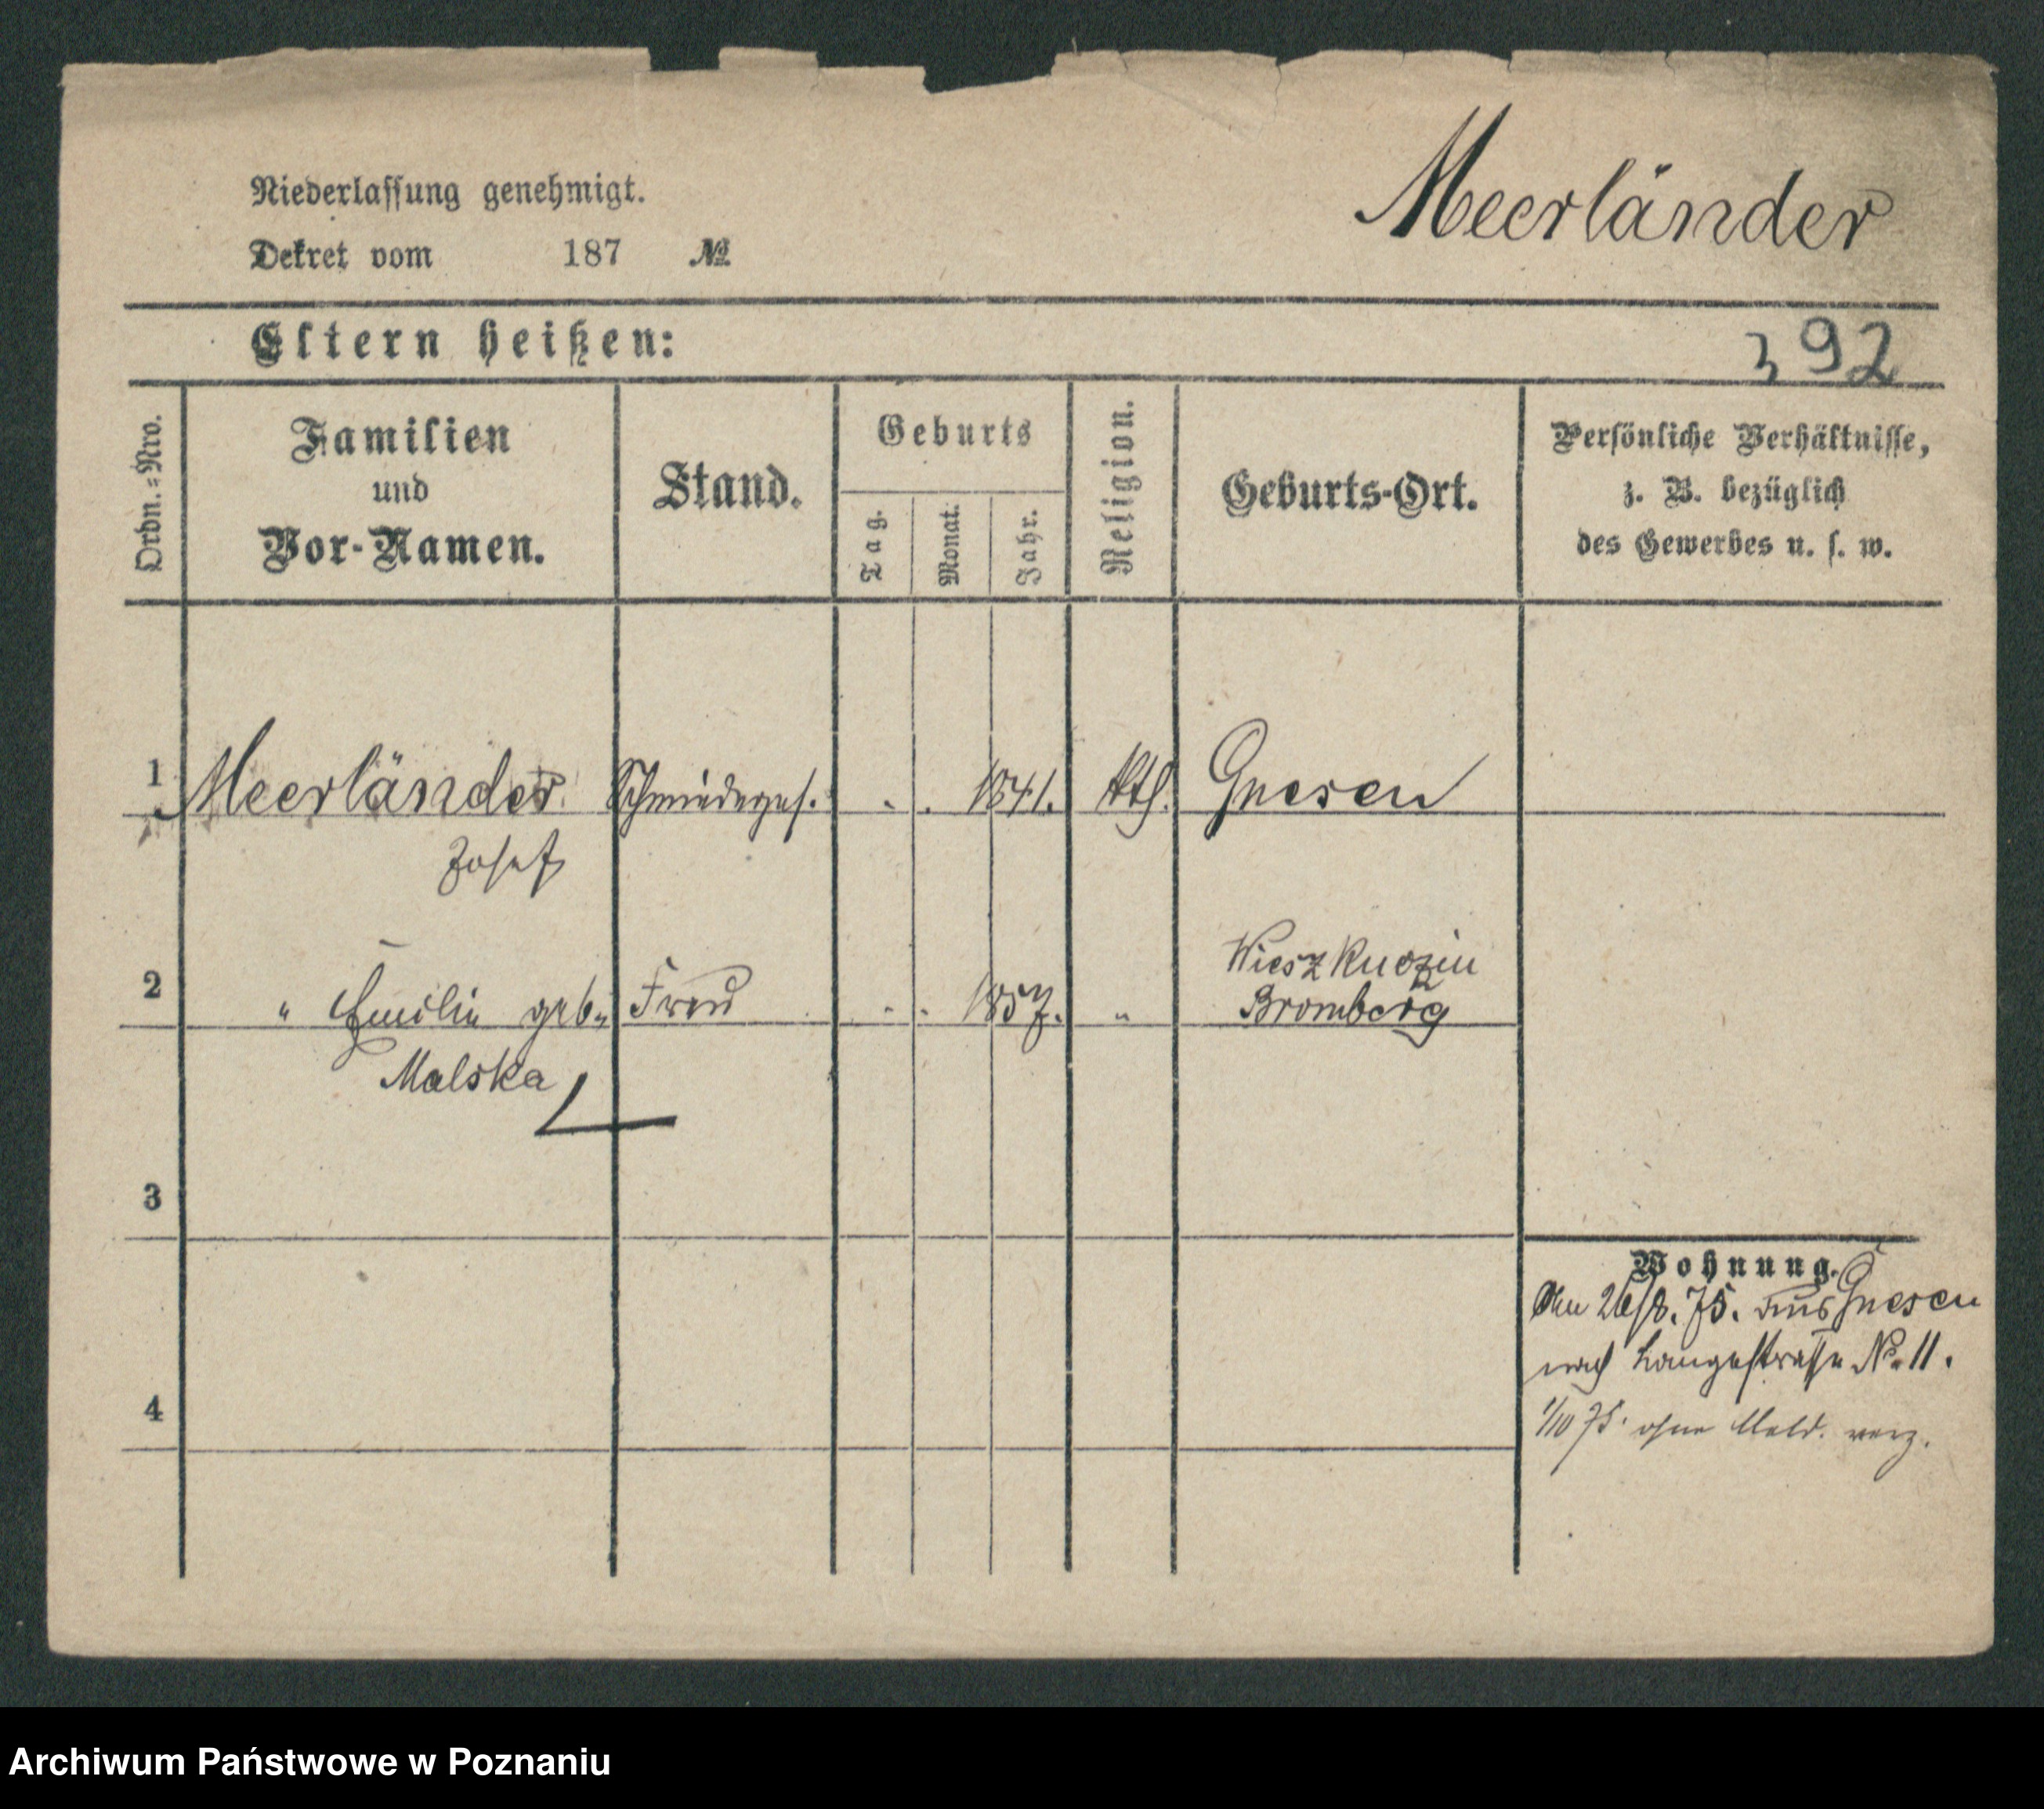 Meerländer
Niederlassung genehmigt.
Dekret vom 187 №
Eltern heißen:
392
Ordn.=Nro.
Familien
und
Vor-Namen.
Stand.
Geburts
Tag.
Monat.
Jahr.
Religion.
Geburts-Ort.
Persönliche Verhältnisse,
z. B. bezüglich
des Gewerbes u. s. w.
1 Meerländer Schmiedeges. . . 1841. Kth. Gnesen
Josef
Bromberg
2 " Emilie geb. Frau . . 1857. "
Malska
3
Wohnung.
Am 26/8. 75. aus Gnesen
nach Langestrasse No 11.
4
1/10 75. ohne Meld. verz.
Archiwum Państwowe w Poznaniu